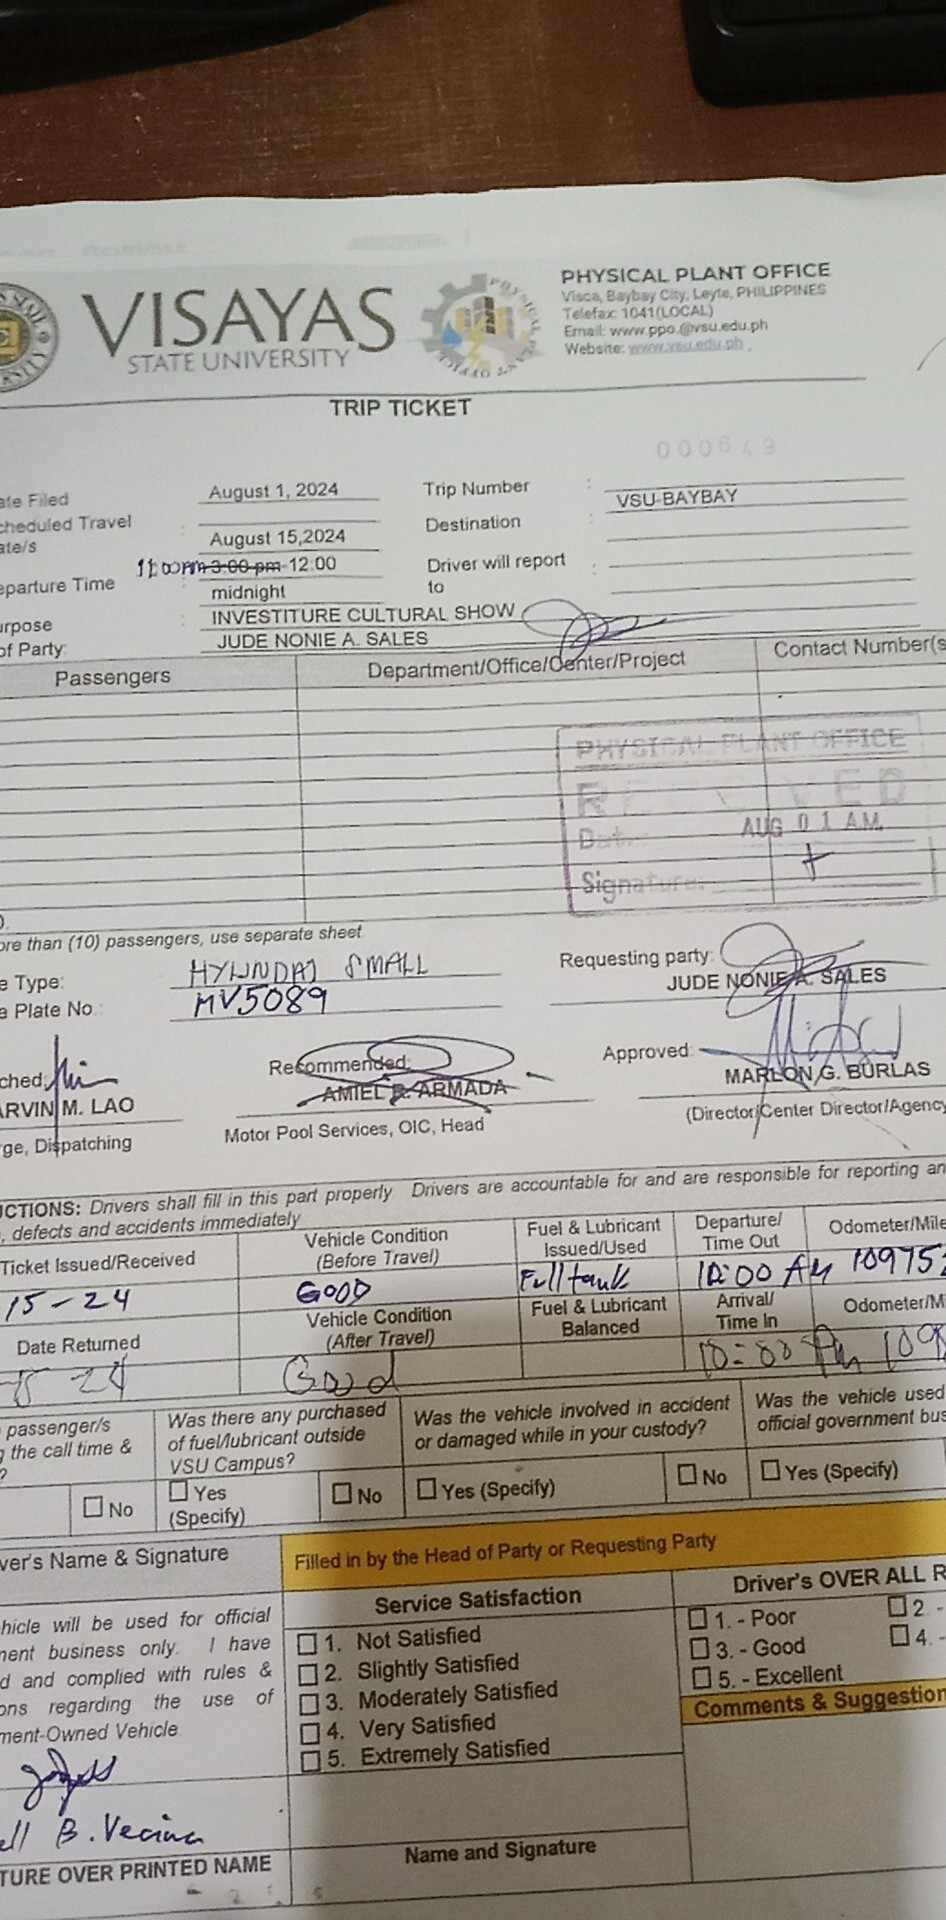 VISAYAS
STATE UNIVERSITY
PHYSICAL PLANT OFFICE
Visca, Baybay City, Leyte, PHILIPPINES
Telefax: 1041(LOCAL)
Email: www.ppo.@vsu.edu.ph
Website: www.vsu.edu.ph
TRIP TICKET
ate Filed August 1, 2024 Trip Number :
cheduled Travel ate/s : August 15,2024 Destination : VSU-BAYBAY
eparture Time 3:00 pm-12:00 midnight Driver will report to :
urpose : INVESTITURE CULTURAL SHOW
of Party: JUDE NONIE A. SALES
Passengers Department/Office/Center/Project Contact Number(s
PHYSICAL PLANT OFFICE
RECEIVED
Date:
AUG 01 A.M.
Signature:
ore than (10) passengers, use separate sheet
e Type: HYUNDAI SMALL Requesting party:
e Plate No.: MV5089 JUDE NONIE A. SALES
ched: Recommended: Approved:
ARVIN M. LAO AMIEL R. ARMADA MARLON G. BURLAS
rge, Dispatching Motor Pool Services, OIC, Head (Director/Center Director/Agency
UCTIONS: Drivers shall fill in this part properly Drivers are accountable for and are responsible for reporting an
, defects and accidents immediately
Ticket Issued/Received Vehicle Condition (Before Travel) Fuel & Lubricant Issued/Used Departure/ Time Out Odometer/Mile
15-24 GOOD Full tank 10:00 AM 10975
Date Returned Vehicle Condition (After Travel) Fuel & Lubricant Balanced Arrival/ Time In Odometer/Mi
24 Good 10:00 Pm 109
passenger/s
g the call time &
?
No
Was there any purchased
of fuel/lubricant outside
VSU Campus?
Yes (Specify) No
Was the vehicle involved in accident
or damaged while in your custody?
Yes (Specify) No
Was the vehicle used
official government bus
Yes (Specify)
ver's Name & Signature
Filled in by the Head of Party or Requesting Party
hicle will be used for official
ment business only. I have
d and complied with rules &
ons regarding the use of
ment-Owned Vehicle.
Service Satisfaction
1. Not Satisfied
2. Slightly Satisfied
3. Moderately Satisfied
4. Very Satisfied
5. Extremely Satisfied
Driver's OVER ALL R
1. - Poor 2. -
3. - Good 4. -
5. - Excellent
Comments & Suggestion
ell B. Vecina
TURE OVER PRINTED NAME
Name and Signature